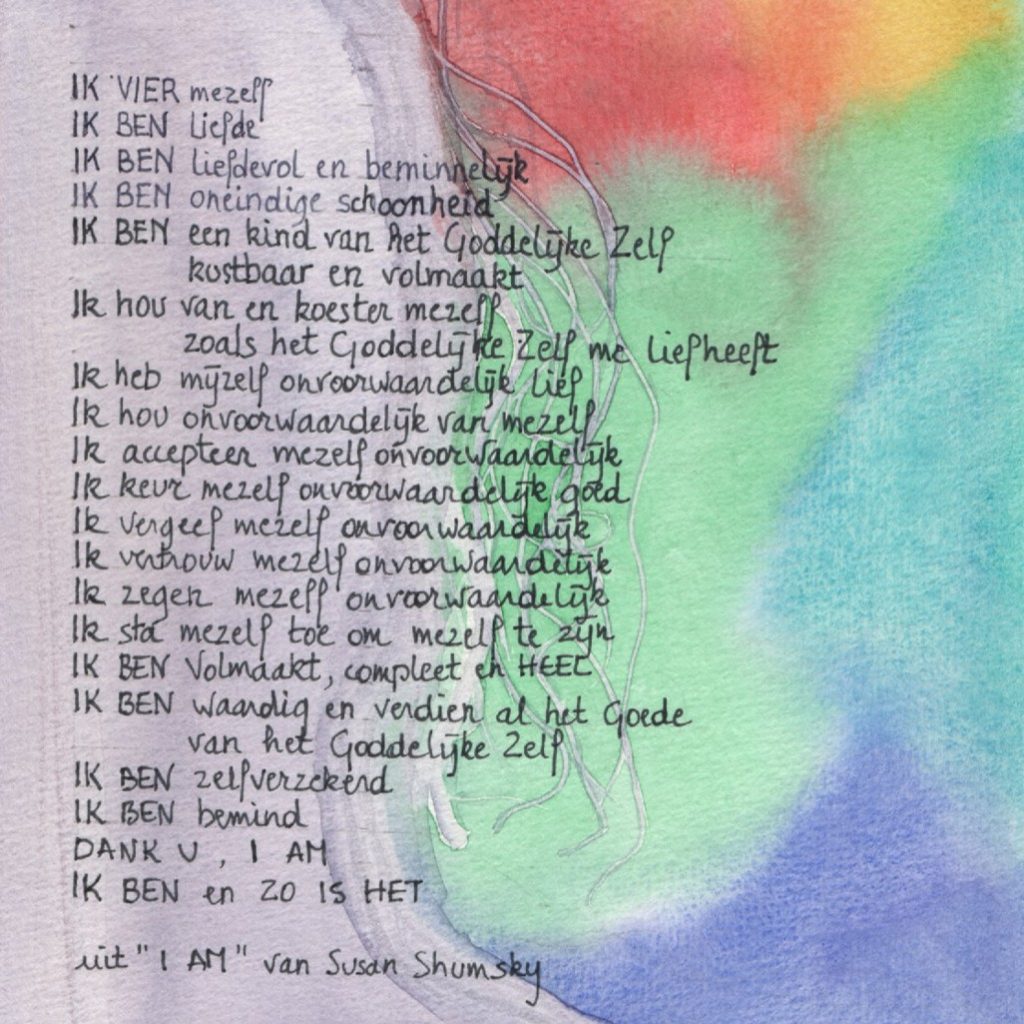 IK VIER mezelf
IK BEN liefde
IK BEN liefdevol en beminnelijk
IK BEN oneindige schoonheid
IK BEN een kind van het Goddelijke Zelf
kostbaar en volmaakt
Ik hou van en koester mezelf
zoals het Goddelijke Zelf me liefheeft
Ik heb mijzelf onvoorwaardelijk lief
Ik hou onvoorwaardelijk van mezelf
Ik accepteer mezelf onvoorwaardelijk
Ik keur mezelf onvoorwaardelijk goed
Ik vergeef mezelf onvoorwaardelijk
Ik vertrouw mezelf onvoorwaardelijk
Ik zegen mezelf onvoorwaardelijk
Ik sta mezelf toe om mezelf te zijn
IK BEN Volmaakt, compleet en HEEL
IK BEN waardig en verdien al het Goede
van het Goddelijke Zelf
IK BEN zelfverzekerd
IK BEN bemind
DANK U, I AM
IK BEN en ZO IS HET
uit "I AM" van Susan Shumsky